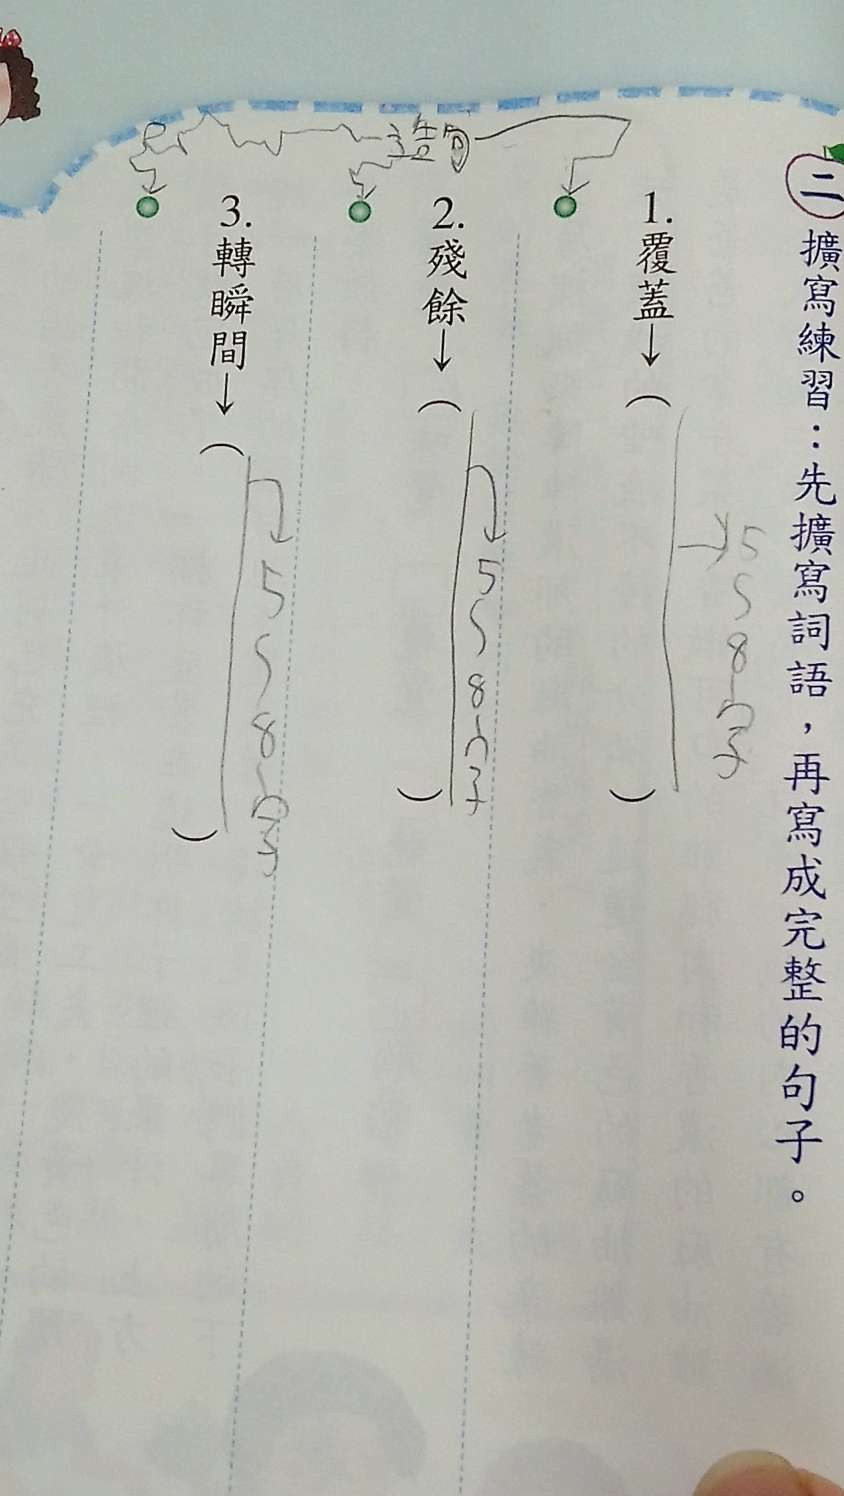 二 擴寫練習：先擴寫詞語，再寫成完整的句子。
1. 覆蓋→（ ）
5～8个子
造句
2. 殘餘→（ ）
5～8个子
3. 轉瞬間→（ ）
5～8个子